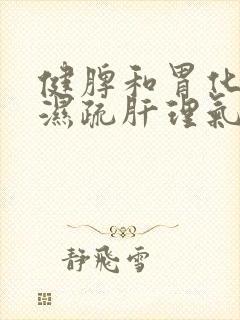 健脾和胃化
濕疏肝理氣
静飛雪